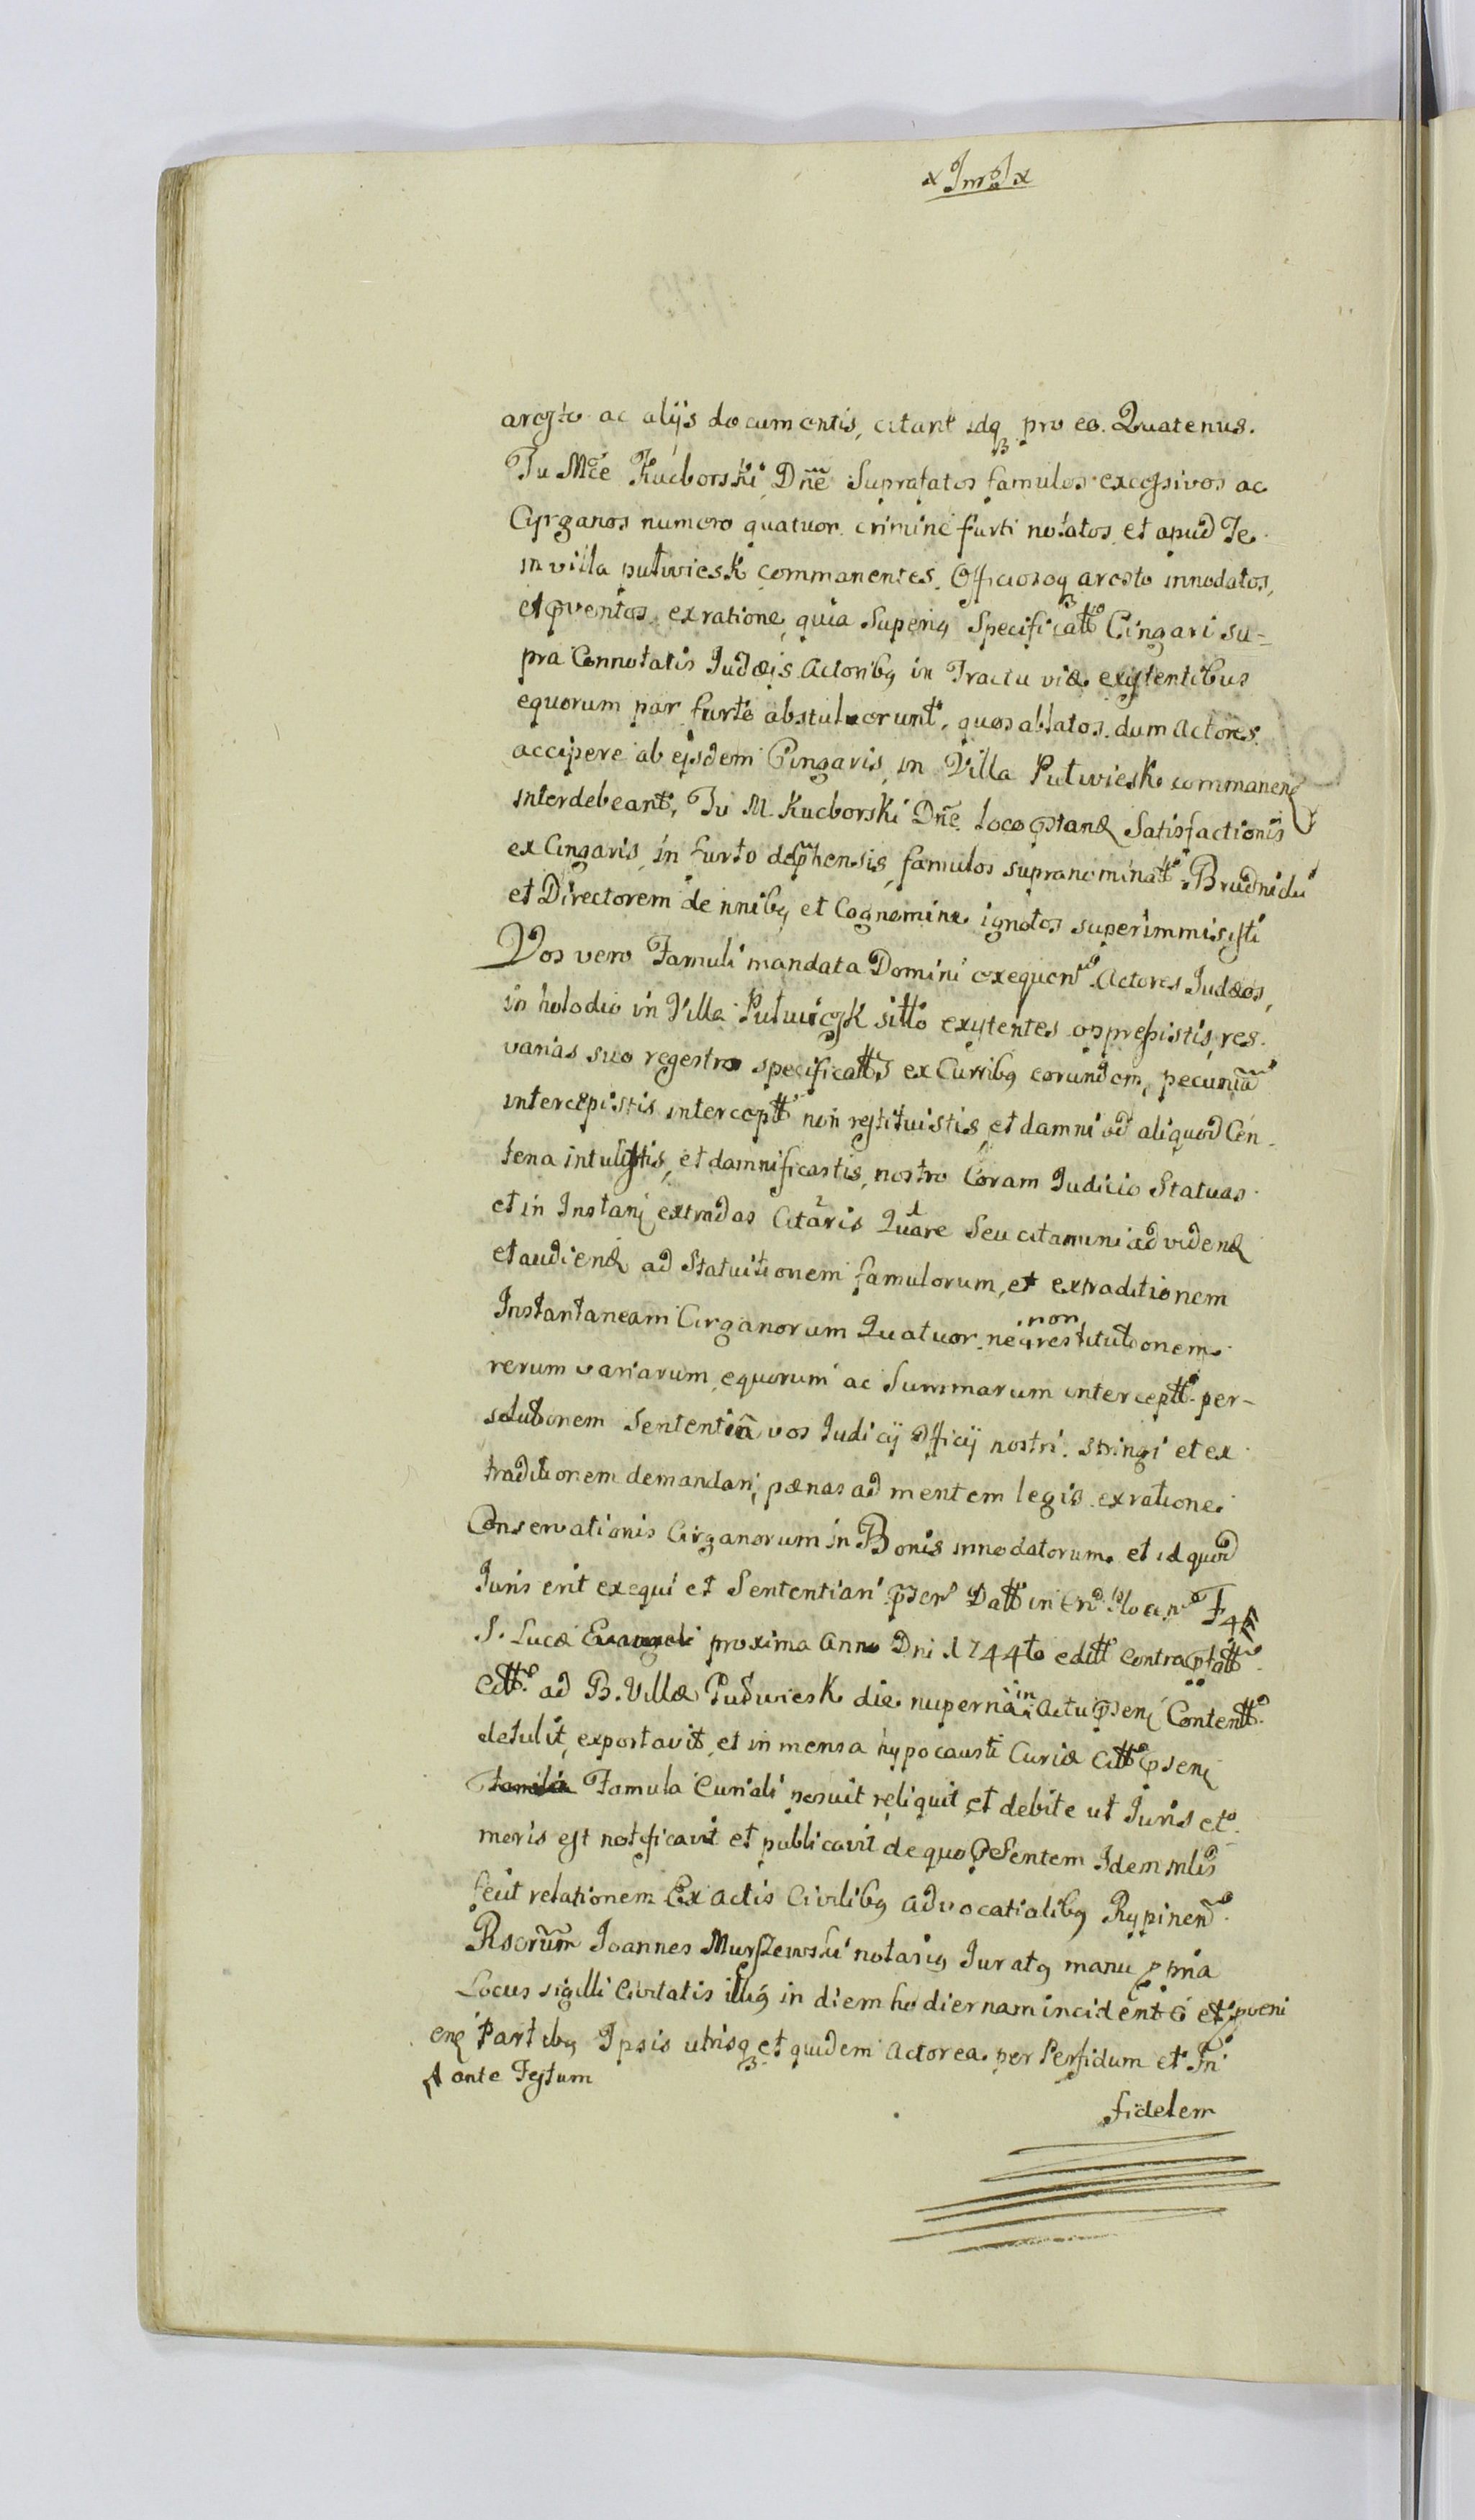 x JmJ x
aresto ac alijs documentis, citant idq pro eo. Quatenus.
Tu Mce Kucborski Dne Supratatos famulos excessivos ac
Cyrganos numero quatuor crimine furti notatos et apud Te
in villa putwiesk commanentes. Officiosoq aresto innodatos,
et pventos, ex ratione, quia Superiq Specificatt Cingari su-
pra Connotatis Judæis Actoribq in Tractu viæ existentibus
equorum par furto abstulerunt, quos ablatos dum Actores
accipere ab eisdem Cingaris in Villa Putwiesk commanen
interdebeant, Tu M. Kucborski Dne loco pstan Satisfactionis
ex Cingaris in furto dephensis, famulos supranominatt Brudnicki
et Directorem de nnibq et Cognomine ignotos superimmisisti
Vos vero Famuli mandata Domini exequen Actores Judæos,
in holodio in Villa Putwiesk sitto existentes oppressistis, res
varias suo regestro specificatts ex Curribq eorundem, pecunia
intercepistis intercept non restituistis, et damni ad aliquod Cen-
tena intulistis, et damnificastis, nostro Coram Judicio Statuas
et in Instan extradas Citaris Quare Seu citamini ad viden
et audien ad Statuitionem famulorum, et extraditionem
Instantaneam Cirganorum Quatuor. neq non restitutionem
rerum variarum, equorum ac Summarum intercept. per-
solutionem Sententia vos Judicij Officij nostri. stringi et ex
traditionem demandari, pænas ad mentem legis ex ratione
Conservationis Cirganorum in Bonis innodatorum et id quod
Juris erit exequi et Sententiari pser Datt in F4
S. Lucæ proxima Anno Dni 1744to editt contra ptatt
Citt. ad B. Villæ Putwiesk die nuperna in Actu psen Contentt
detulit, exportavit, et in mensa hypocausti Curiæ Citt psen
Famula Curiali posuit reliquit et debite ut Juris et
moris est notificavit et publicavit de quo psentem Idem mlis
fecit relationem Ex Actis Civilibq Advocatialibq Rypinen
Rscrum Joannes Murszewski notariq Juratq manu ppria
Locus sigilli Civitatis illiq in diem hodiernam incident et pveni
en Partibq Ipsis utrisq et quidem Actorea per Perfidum et In
ante Festum
fidelem